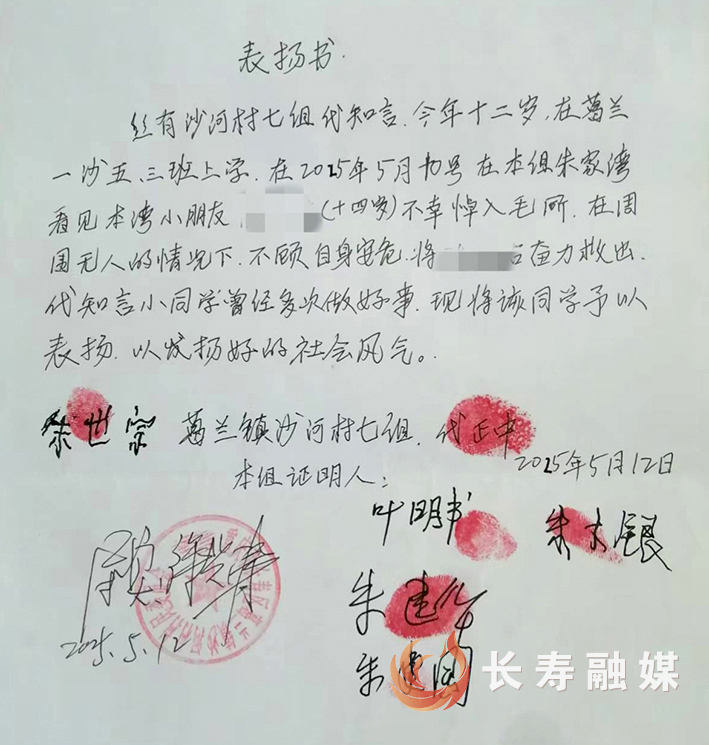 表扬书.
丝有沙河村七组代知言.今年十二岁,在葛兰
一沙五、三班上学.在2025年5月10号在本组朱家湾
看见本湾小朋友(十四岁)不幸悼入毛所.在周
围无人的情况下.不顾自身安危.将奋力救出.
代知言小同学曾经多次做好事.现将该同学予以
表扬.以发扬好的社会风气。.
朱世宗 葛兰镇沙河村七组. 代正中
2025年5月12日
本组证明人:
叶明书 朱大银
朱建华
朱建国
2025.5.12
长寿融媒